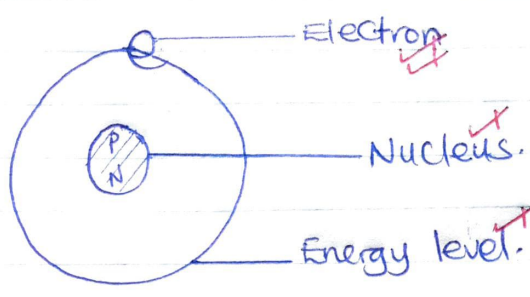 Electron
P
Nucleus.
N
Energy level.